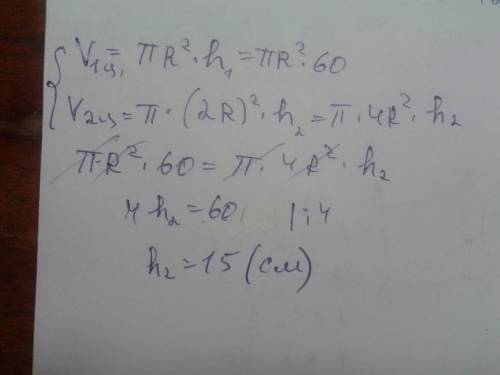 V₁ц. = πR²·h₁ = πR²·60
V₂ц = π·(2R)²·h₂ = π·4R²·h₂
πR²·60 = π·4R²·h₂
4h₂ = 60 | :4
h₂ = 15 (см)